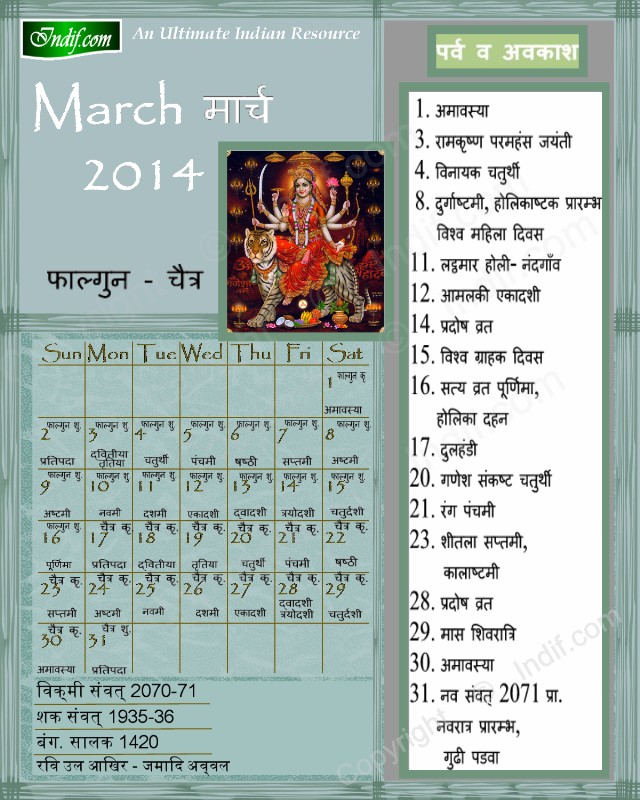 Indif.com
An Ultimate Indian Resource
March मार्च
2014
फाल्गुन - चैत्र
Sun Mon Tue Wed Thu Fri Sat
फाल्गुन कृ.
1
अमावस्या
फाल्गुन शु. फाल्गुन शु. फाल्गुन शु. फाल्गुन शु. फाल्गुन शु. फाल्गुन शु. फाल्गुन शु.
2 3 4 5 6 7 8
प्रतिपदा दवितीया तृतिया चतुर्थी पंचमी षष्ठी सप्तमी अष्टमी
फाल्गुन शु. फाल्गुन शु. फाल्गुन शु. फाल्गुन शु. फाल्गुन शु. फाल्गुन शु. फाल्गुन शु.
9 10 11 12 13 14 15
अष्टमी नवमी दशमी एकादशी द्वादशी त्रयोदशी चतुर्दशी
फाल्गुन शु. चैत्र कृ. चैत्र कृ. चैत्र कृ. चैत्र कृ. चैत्र कृ. चैत्र कृ.
16 17 18 19 20 21 22
पूर्णिमा प्रतिपदा दवितीया तृतिया चतुर्थी पंचमी षष्ठी
चैत्र कृ. चैत्र कृ. चैत्र कृ. चैत्र कृ. चैत्र कृ. चैत्र कृ. चैत्र कृ.
23 24 25 26 27 28 29
सप्तमी अष्टमी नवमी दशमी एकादशी द्वादशी त्रयोदशी चतुर्दशी
चैत्र कृ. चैत्र शु.
30 31
अमावस्या प्रतिपदा
विक्रमी संवत् 2070-71
शक संवत् 1935-36
बंग. सालक 1420
रवि उल आखिर - जमादि अव्वल
पर्व व अवकाश
1. अमावस्या
3. रामकृष्ण परमहंस जयंती
4. विनायक चतुर्थी
8. दुर्गाष्टमी, होलिकाष्टक प्रारम्भ
विश्व महिला दिवस
11. लट्ठमार होली- नंदगाँव
12. आमलकी एकादशी
14. प्रदोष व्रत
15. विश्व ग्राहक दिवस
16. सत्य व्रत पूर्णिमा,
होलिका दहन
17. दुलहंडी
20. गणेश संकष्ट चतुर्थी
21. रंग पंचमी
23. शीतला सप्तमी,
कालाष्टमी
28. प्रदोष व्रत
29. मास शिवरात्रि
30. अमावस्या
31. नव संवत् 2071 प्रा.
नवरात्र प्रारम्भ,
गुढी पडवा
Copyright © Indif.com